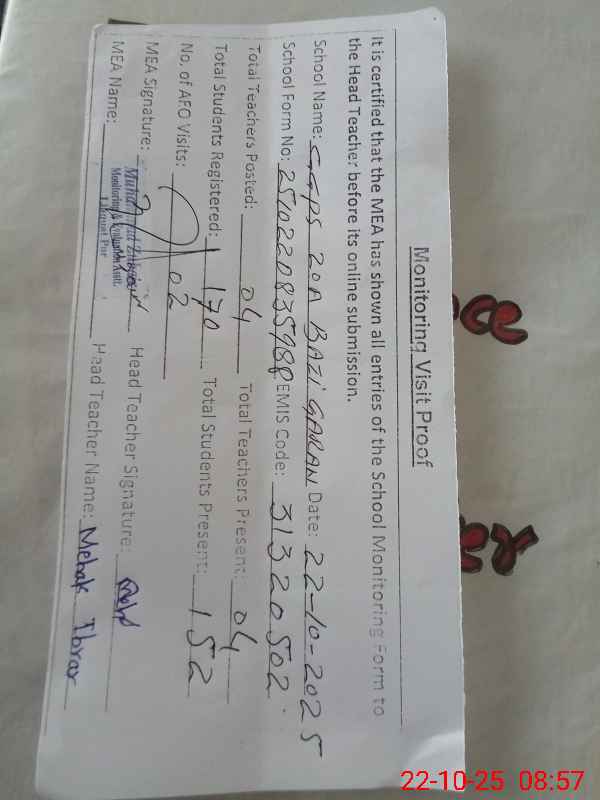 Monitoring Visit Proof
It is certified that the MEA has shown all entries of the School Monitoring Form to
the Head Teacher before its online submission.
School Name: GGPS 20A BAZI GARAN Date: 22-10-2025
School Form No: 2510220835988 EMIS Code: 31320502
Total Teachers Posted: 04 Total Teachers Present: 04
Total Students Registered: 170 Total Students Present: 152
No. of AFO Visits: 02
MEA Signature: Head Teacher Signature:
Monitoring & Evaluation Asst.
Liaquat Pur
MEA Name: Head Teacher Name: Mehak Ibrar
22-10-25 08:57